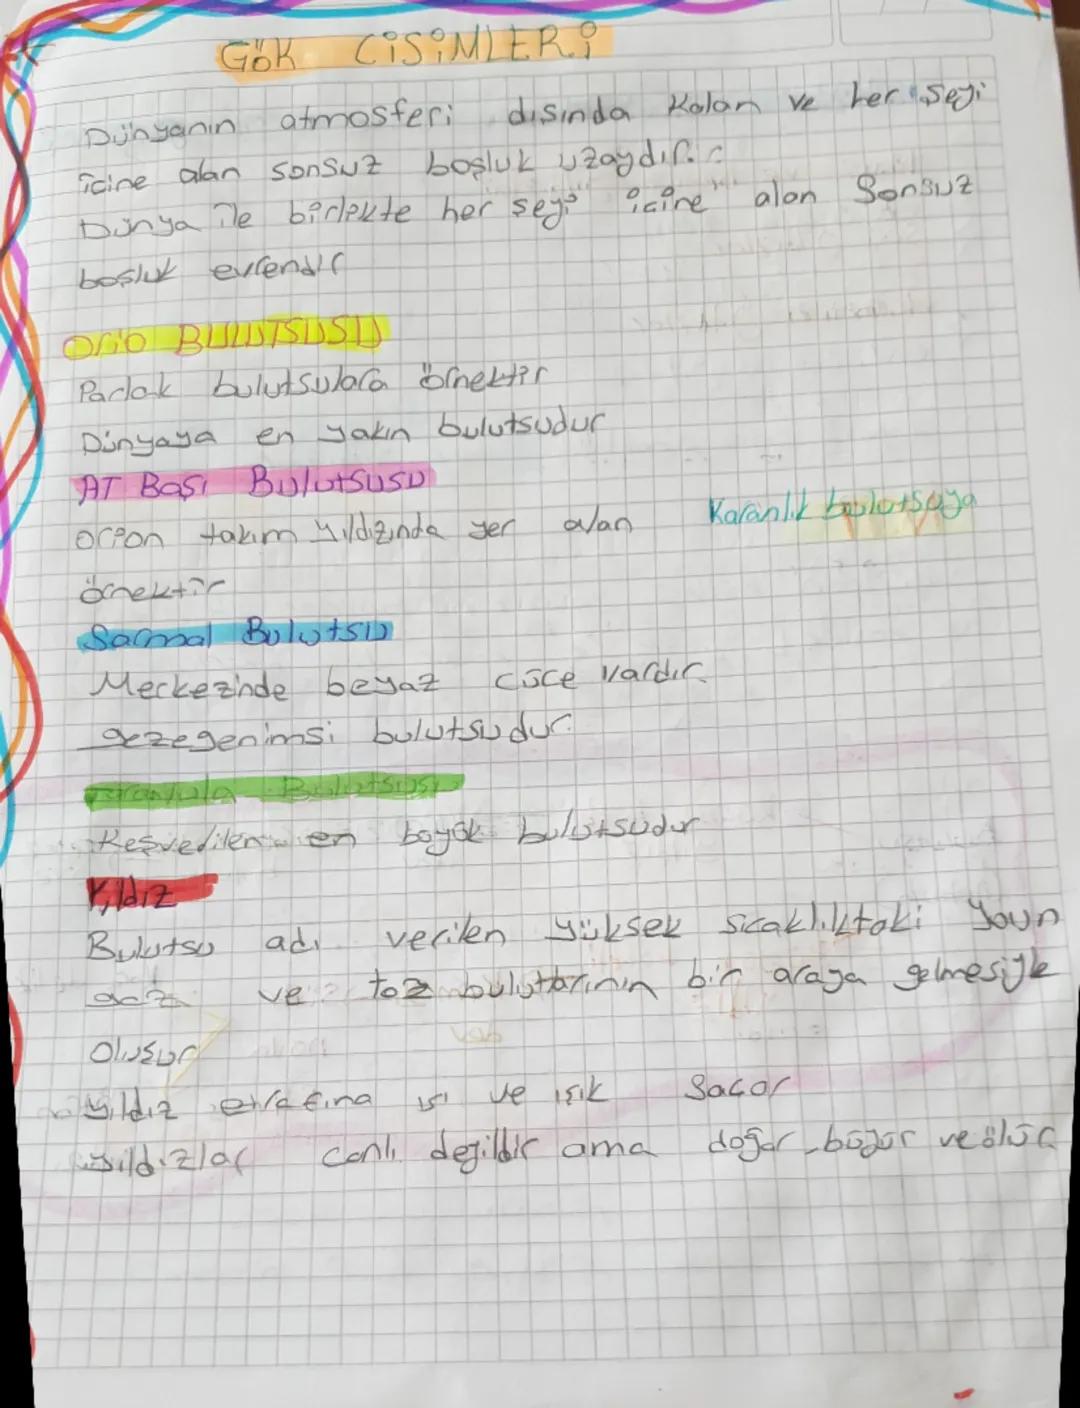 GÖK CİSİMLERİ
Dünyanın atmosferi dısında Kalan ve her Seyi
icine alan sonsuz boşluk uzaydır.
Dünya ile birlekte her şeyi icine alan Sonsuz
bosluk evrendir
BULUTSUSU
Parlak bulutsulara örnektir
Dünyaya en yakın bulutsudur
AT Başı Bulutsusu
orion takım yıldızında yer alan Karanlık bulutsuya
örnektir
Sarmal Bulutsu
Merkezinde beyaz cüce vardır.
gezegenimsi bulutsudur.
Tarantula Bulutsusu
Keşvedilen en büyük bulutsudur
Yıldız
Bulutsu adı verilen yüksek sıcaklıktaki youn
gaz ve toz bulutlarının bir araya gelmesiyle
Oluşur
yıldız etrafına ısı ve ışık Sacar
yıldızlar canlı değildir ama doğar büyür ve ölür